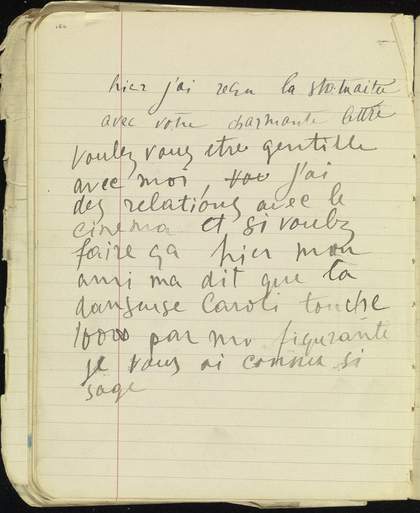 hier j'ai reçu la
avec votre charmante lettre
voulez vous etre gentille
avec moi, j'ai
des relations avec le
cinema et si voulez
faire ça hier mon
ami ma dit que la
danseuse Caroli touche
par figurante
je vous ai connu si
sage